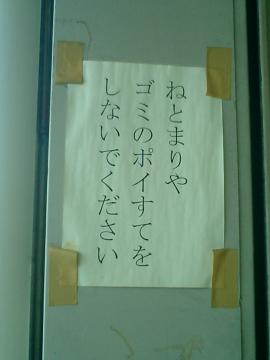 ねとまりや
ゴミのポイすてを
しないでください